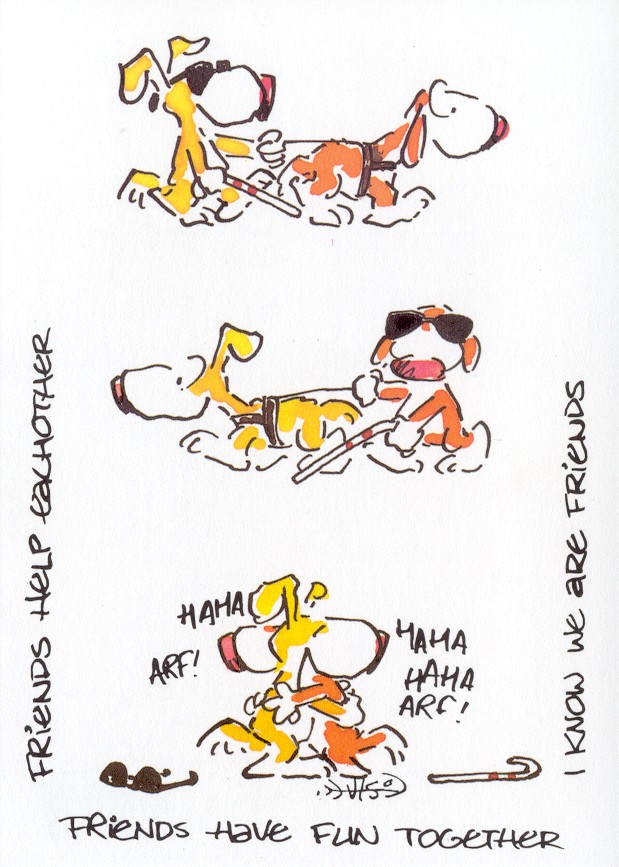 FRIENDS HELP EACHOTHER
I KNOW WE ARE FRIENDS
HAHA
ARF!
HAHA
HAHA
ARF!
FRIENDS HAVE FUN TOGETHER